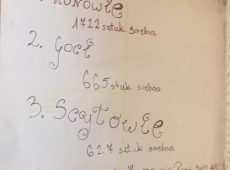 HUNOWIE
1722 sztuk srebna
2. Goci
665 sztuk srebna
3. Scytowie
627 sztuk srebna